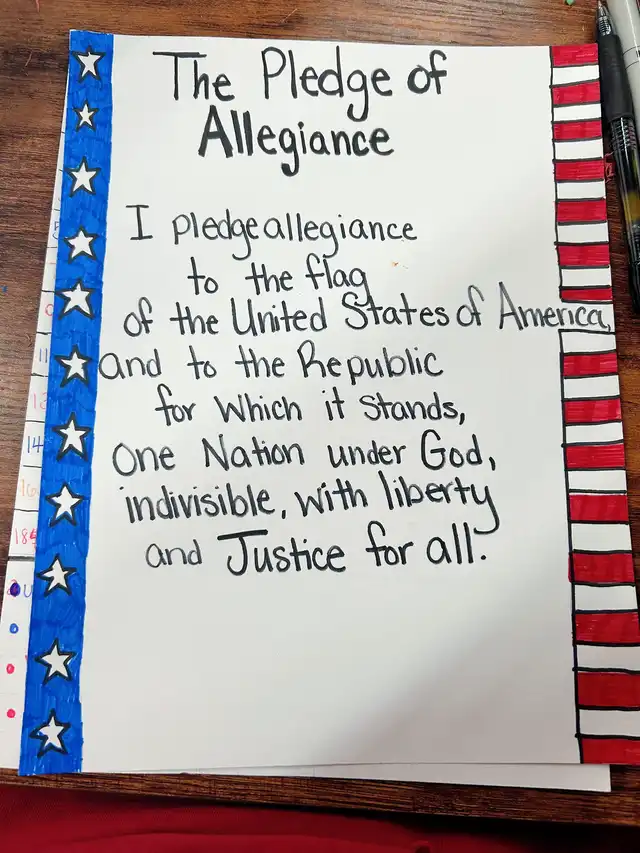 The Pledge of
Allegiance
I pledge allegiance
to the flag
of the United States of America,
and to the Republic
for which it stands,
One Nation under God,
indivisible, with liberty
and Justice for all.